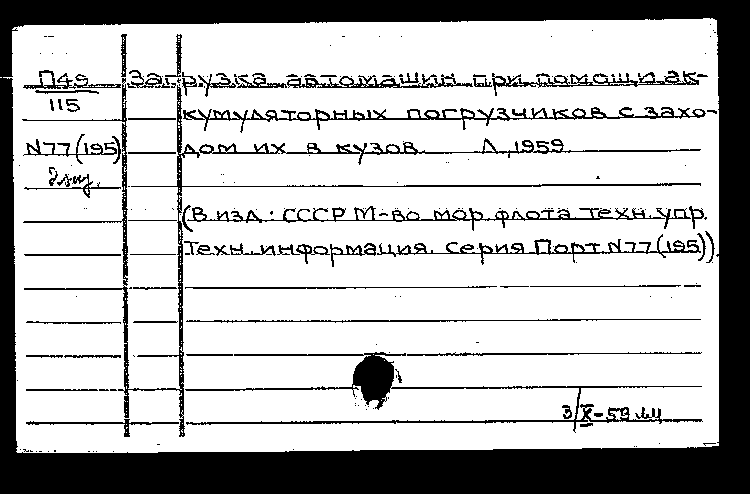 П49
115
N77(195)
2 экз.
Загрузка автомашин при помощи ак-
кумуляторных погрузчиков с захо-
дом их в кузов. Л., 1959.
(В изд.: СССР М-во мор. флота. Техн. упр.
Техн. информация. Серия Порт. N77(195)).
3/X-59